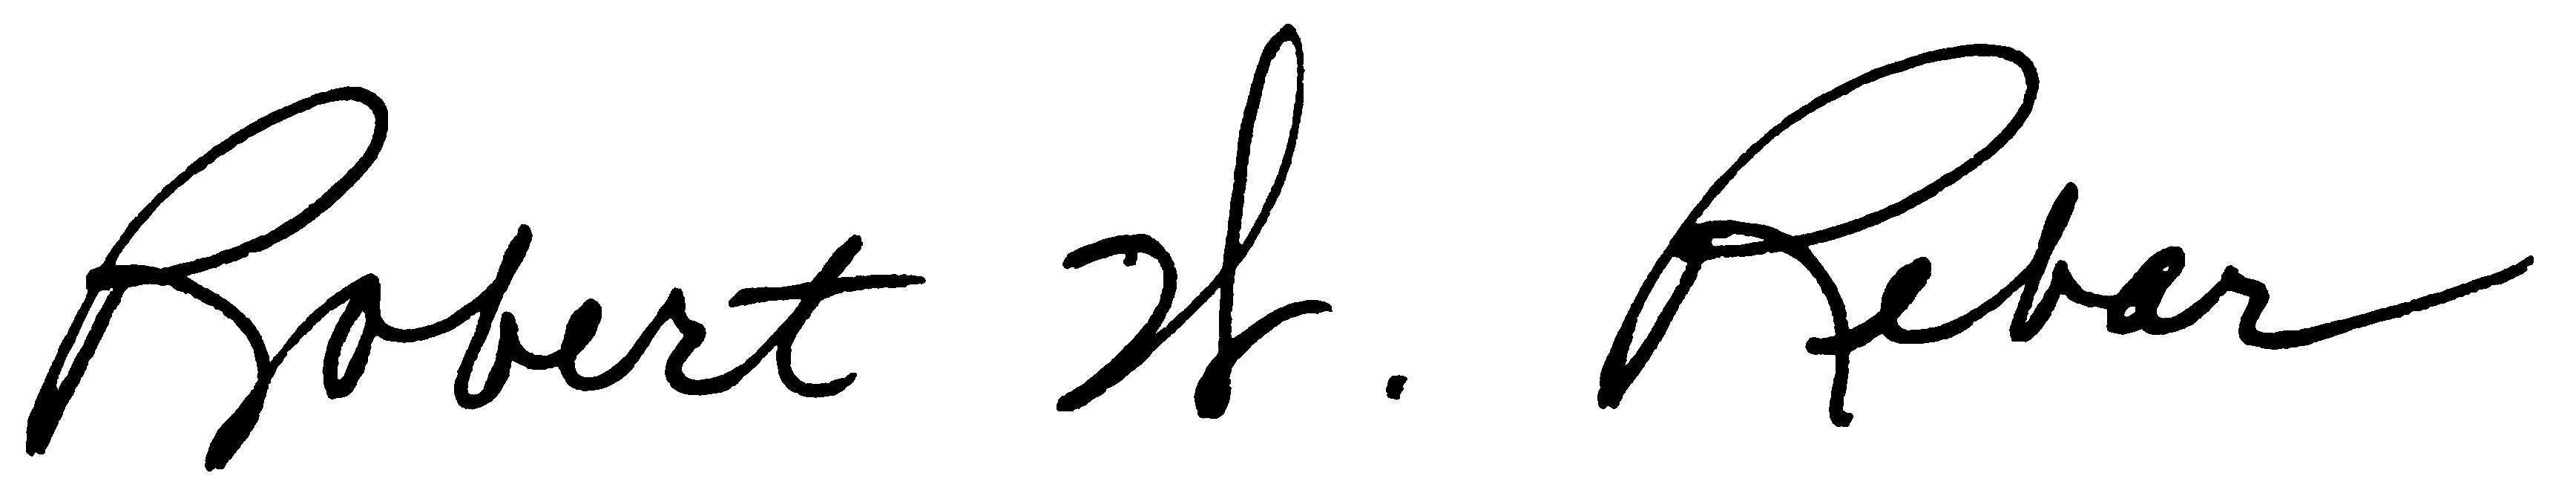 Robert W. Rebar